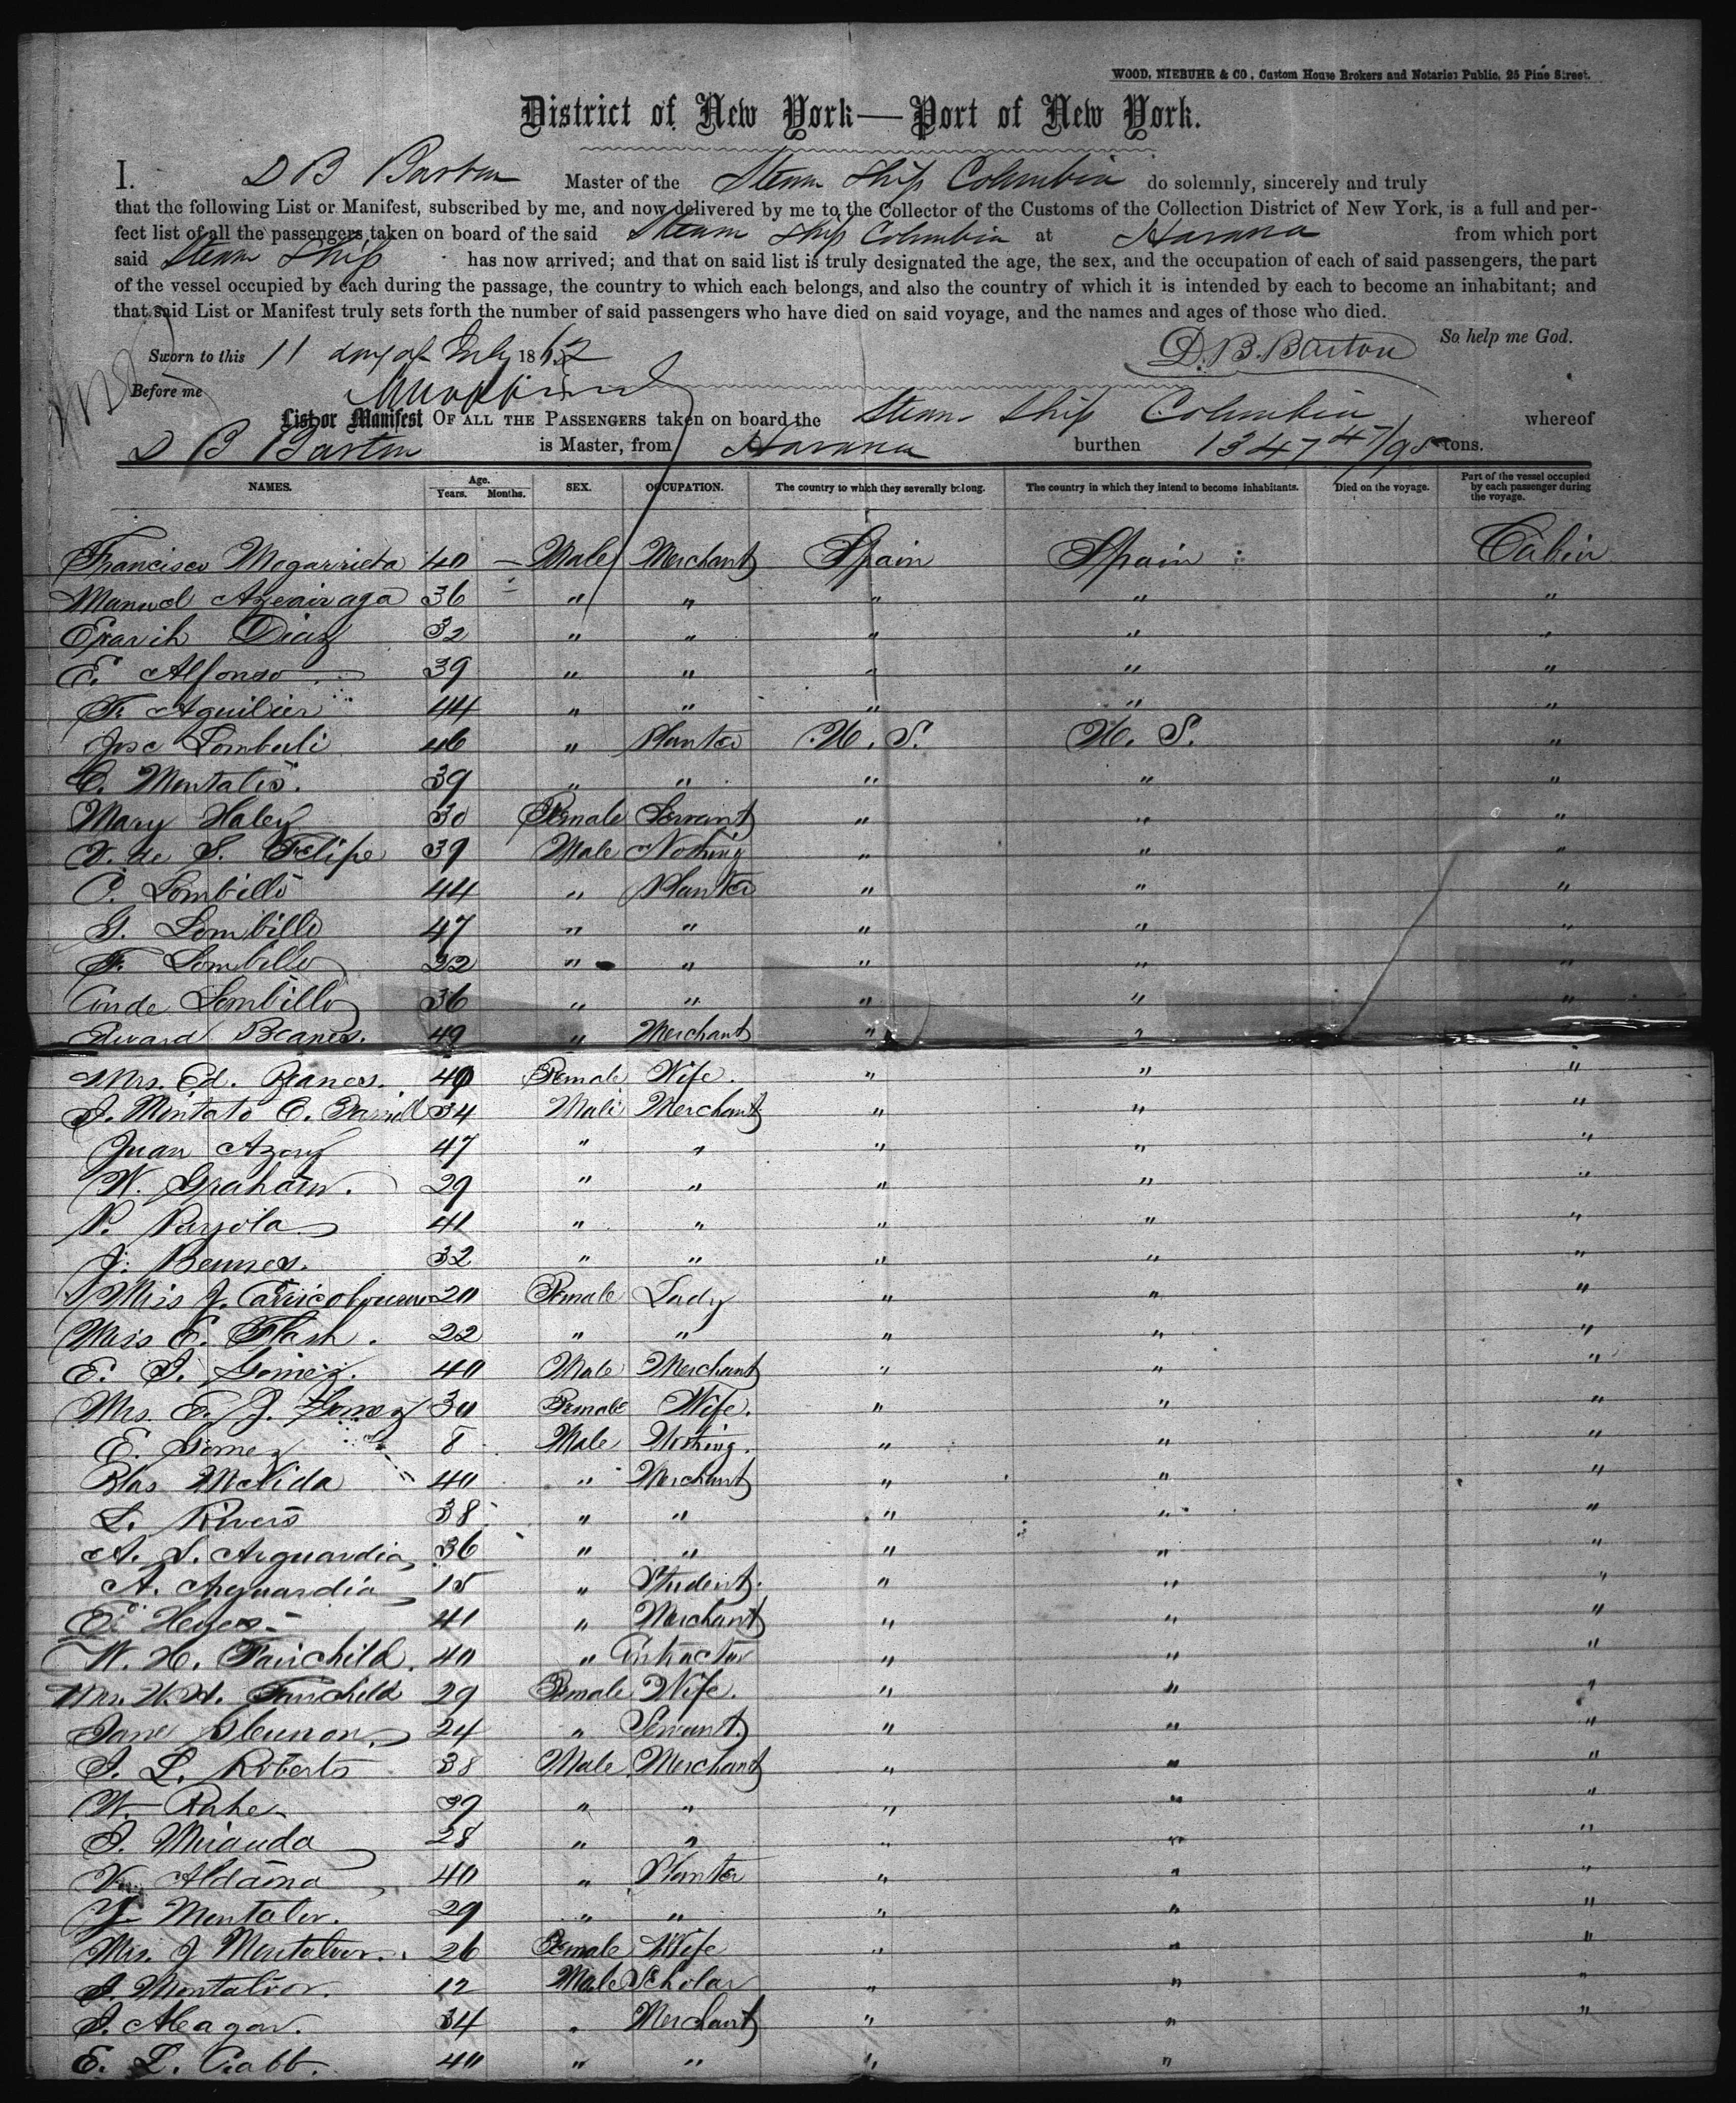 WOOD, NIEBUHR & CO., Custom House Brokers and Notaries Public, 25 Pine Street.
District of New York—Port of New York.
I. D B Barton Master of the Steam Ship Columbia do solemnly, sincerely and truly
that the following List or Manifest, subscribed by me, and now delivered by me to the Collector of the Customs of the Collection District of New York, is a full and per-
fect list of all the passengers taken on board of the said Steam Ship Columbia at Havana from which port
said Steam Ship has now arrived; and that on said list is truly designated the age, the sex, and the occupation of each of said passengers, the part
of the vessel occupied by each during the passage, the country to which each belongs, and also the country of which it is intended by each to become an inhabitant; and
that said List or Manifest truly sets forth the number of said passengers who have died on said voyage, and the names and ages of those who died.
So help me God.
Sworn to this 11 day of July 1862 D. B. Barton
Before me
List or Manifest OF ALL THE PASSENGERS taken on board the Steam Ship Columbia whereof
D B Barton is Master, from Havana burthen 1347 47/95 tons.
NAMES. Age. Years. Months. SEX. OCCUPATION. The country to which they severally belong. The country in which they intend to become inhabitants. Died on the voyage. Part of the vessel occupied by each passenger during the voyage.
Francisco Mogarrieta 40 — Male Merchant Spain Spain Cabin
Manuel 36 " " " " "
Diaz 32 " " " " "
E. Alfonso 39 " " " " "
F. Aguilier 44 " " " " "
Jose Lombali 46 " Planter U. S. U. S. "
C. Montalis. 39 " " " " "
Mary Haley 30 Female Servant " " "
V. de S. Felipe 39 Male Nothing " " "
C. Lombillo 44 " Planter " " "
G. Lombillo 47 " " " " "
F. Lombillo 22 " " " " "
Conde Lombillo 36 " " " " "
Edward Beanes. 49 " Merchant " " "
Mrs. Ed. Beanes. 40 Female Wife. " " "
J. Mintato C. 34 Male Merchant " " "
Juan Azoy 47 " " " " "
W. Graham. 29 " " " " "
P. Puyola 41 " " " " "
J. Beunes. 32 " " " " "
Miss J. 20 Female Lady " " "
Miss E. Flash. 22 " " " " "
E. J. Gomez. 40 Male Merchant " " "
Mrs. E. J. Gomez 30 Female Wife. " " "
E. Gomez 8 Male Nothing. " " "
Blas McVida 40 " Merchant " " "
L. Rivero 38 " " " " "
A. L. Arguardia 36 " " " " "
A. Arguardia 15 " Student. " " "
E. Heyes 41 " Merchant " " "
W. H. Fairchild. 40 " Contractor " " "
Mrs. W. H. Fairchild 29 Female Wife. " " "
Jane Glennon. 24 " Servant. " " "
J. L. Roberts 38 Male Merchant " " "
W. Rahe 39 " " " " "
J. Miranda 28 " " " " "
V. Aldama 40 " Planter " " "
Y. Montalvr. 29 " " " " "
Mrs. J Montalvor. 26 Female Wife " " "
J. Montalvor. 12 Male Scholar " " "
J. Meagar. 34 " Merchant " " "
E. L. Crabb. 40 " " " "